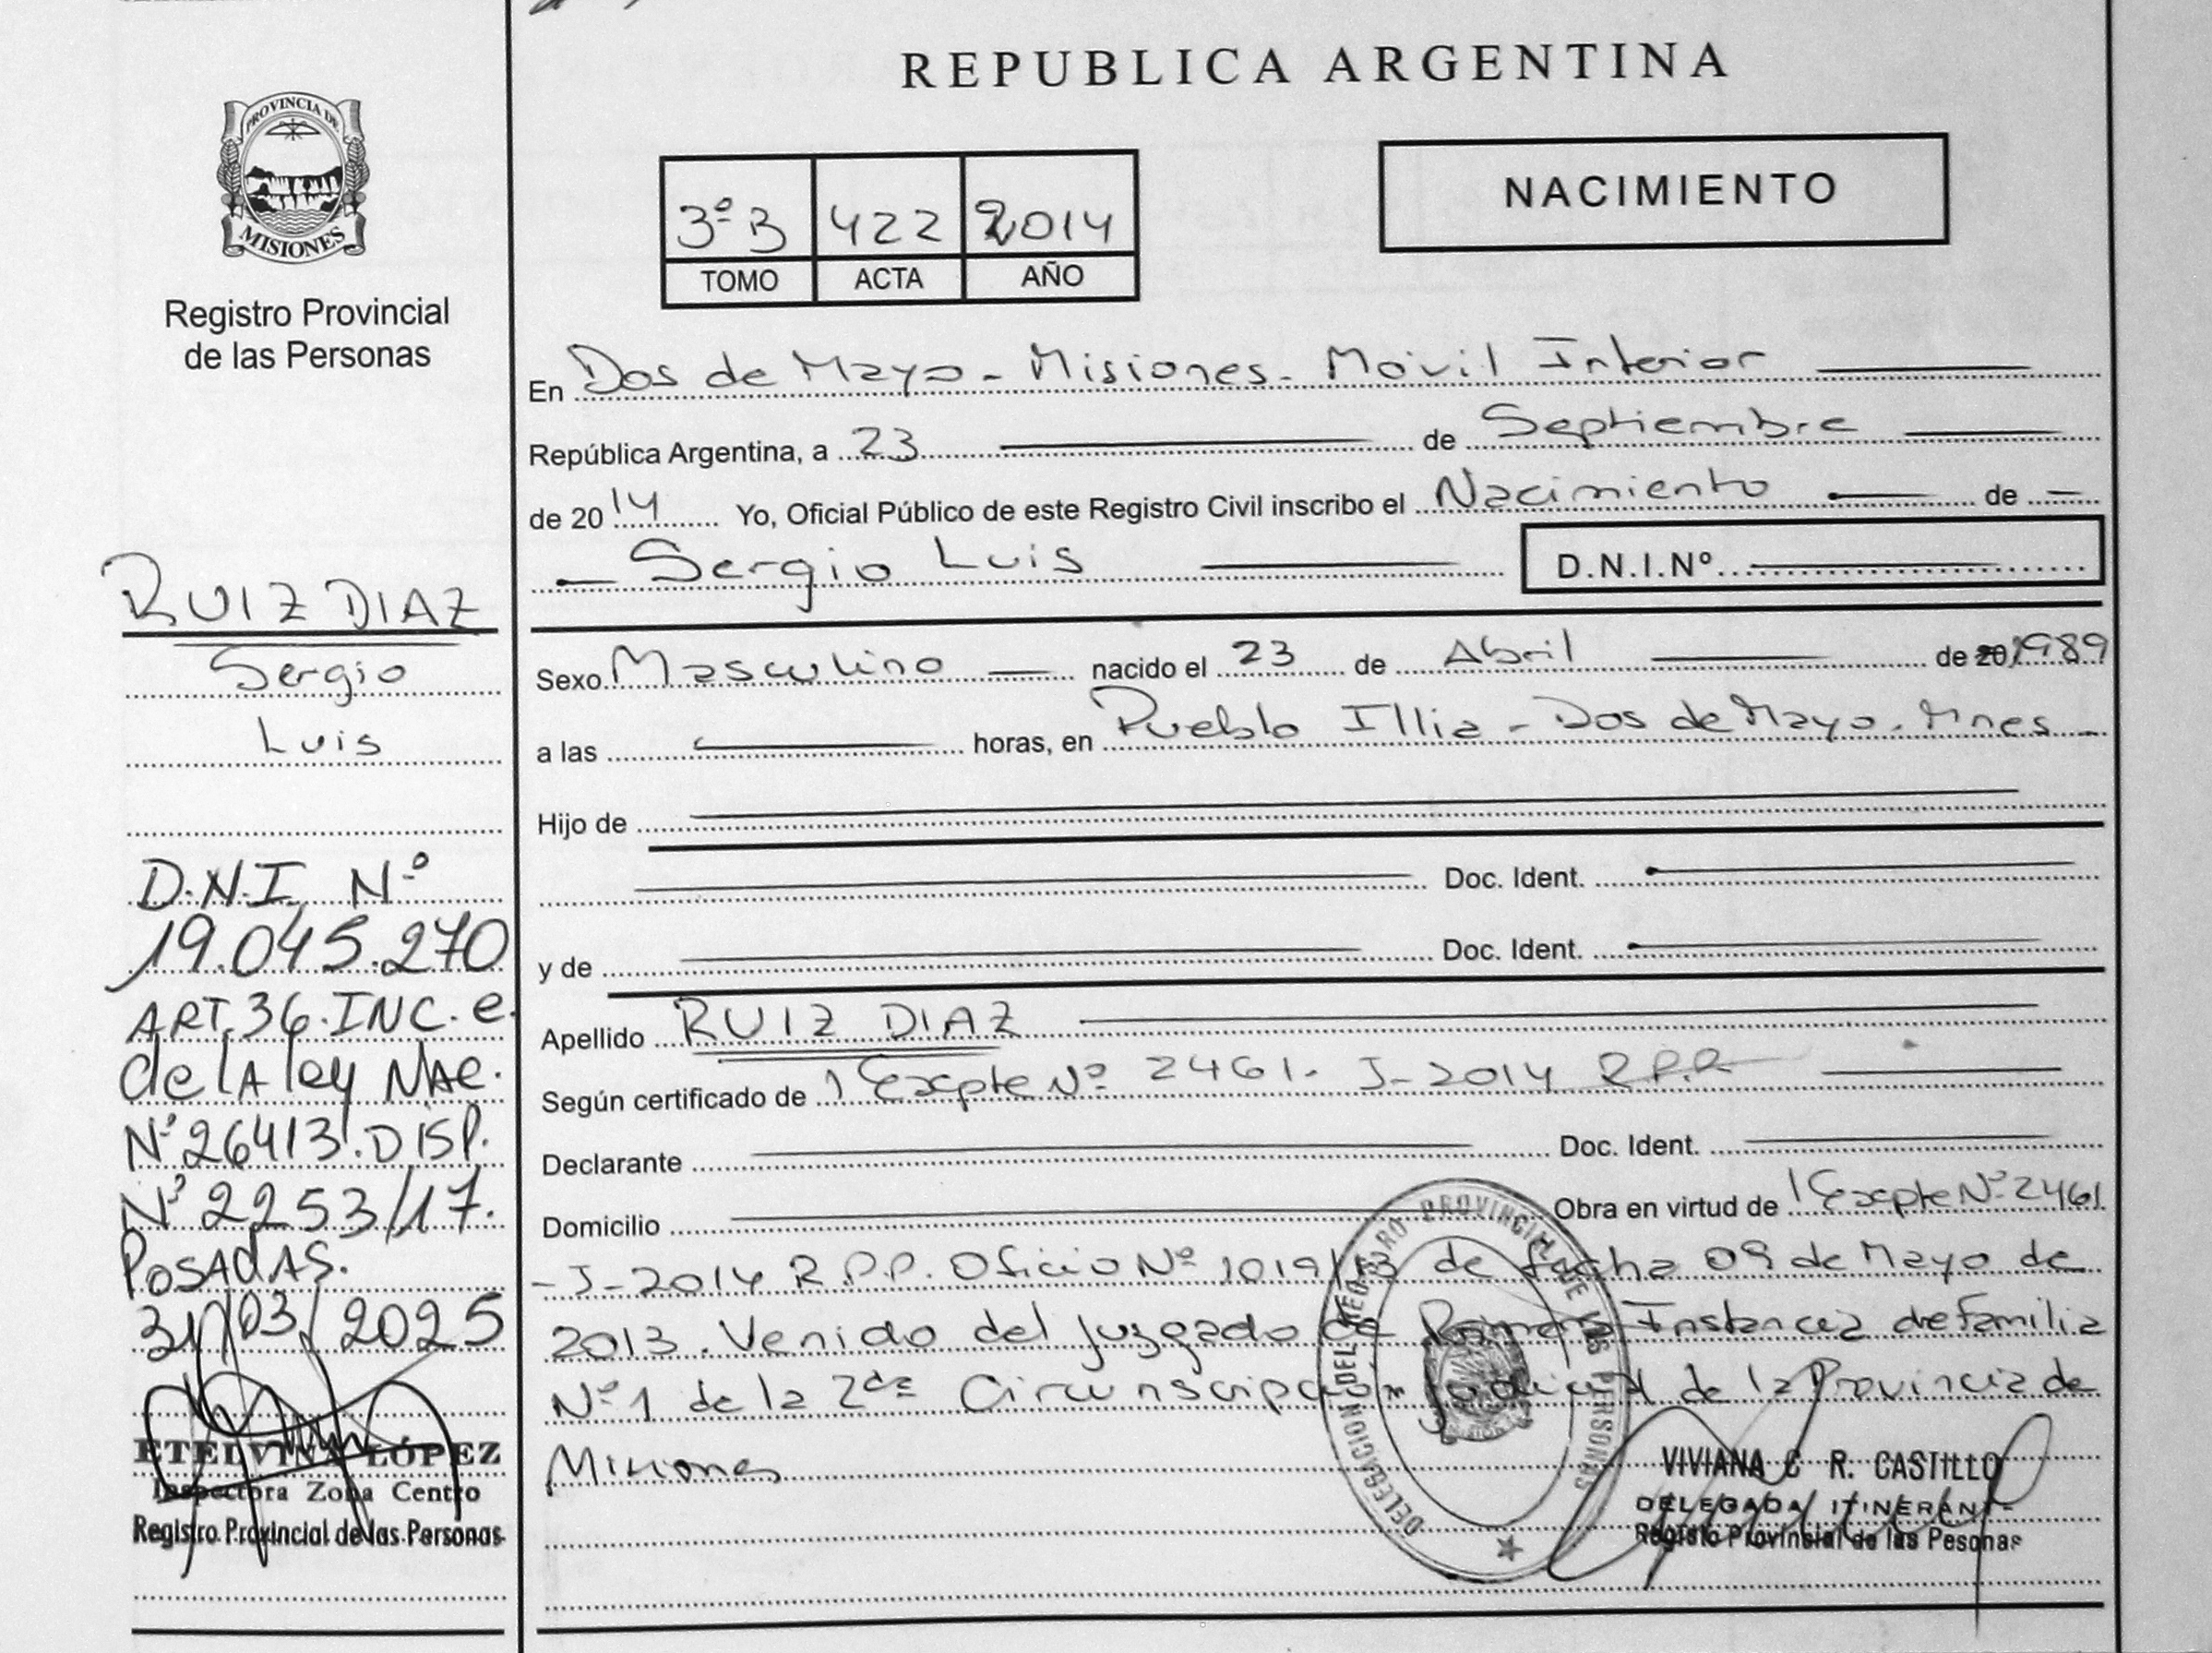 REPUBLICA ARGENTINA
PROVINCIA DE
MISIONES
Registro Provincial
de las Personas
NACIMIENTO
3º B 422 2014
TOMO ACTA AÑO
En Dos de Mayo - Misiones - Móvil Interior
República Argentina, a 23 de Septiembre
de 2014 Yo, Oficial Público de este Registro Civil inscribo el Nacimiento de
Sergio Luis D.N.I.Nº
Sexo Masculino nacido el 23 de Abril de 20 1989
a las horas, en Pueblo Illia - Dos de Mayo - Mnes
Hijo de
Doc. Ident.
y de Doc. Ident.
Apellido RUIZ DIAZ
Según certificado de 1 Expte Nº 2461 - J - 2014 R.P.P.
Declarante Doc. Ident.
Domicilio Obra en virtud de 1 Expte Nº 2461
- J - 2014 R.P.P. Oficio Nº 1019/13 de fecha 09 de Mayo de
2013. Venido del Juzgado de Primera Instancia de Familia
Nº 1 de la 2da Circunscripción Judicial de la Provincia de
Misiones
VIVIANA C R. CASTILLO
DELEGADA ITINERANTE
Registo Provinsial de las Pesonas
DELEGACION DEL REGISTRO PROVINCIAL DE LAS PERSONAS
RUIZ DIAZ
Sergio
Luis
D.N.I. Nº
19.045.270
ART. 36. INC. e.
de lA ley NAc.
Nº 26413. DISP.
Nº 2253/17.
PosAdAS.
31/03/2025
ETELVINA LÓPEZ
Inspectora Zona Centro
Registro Provincial de las Personas